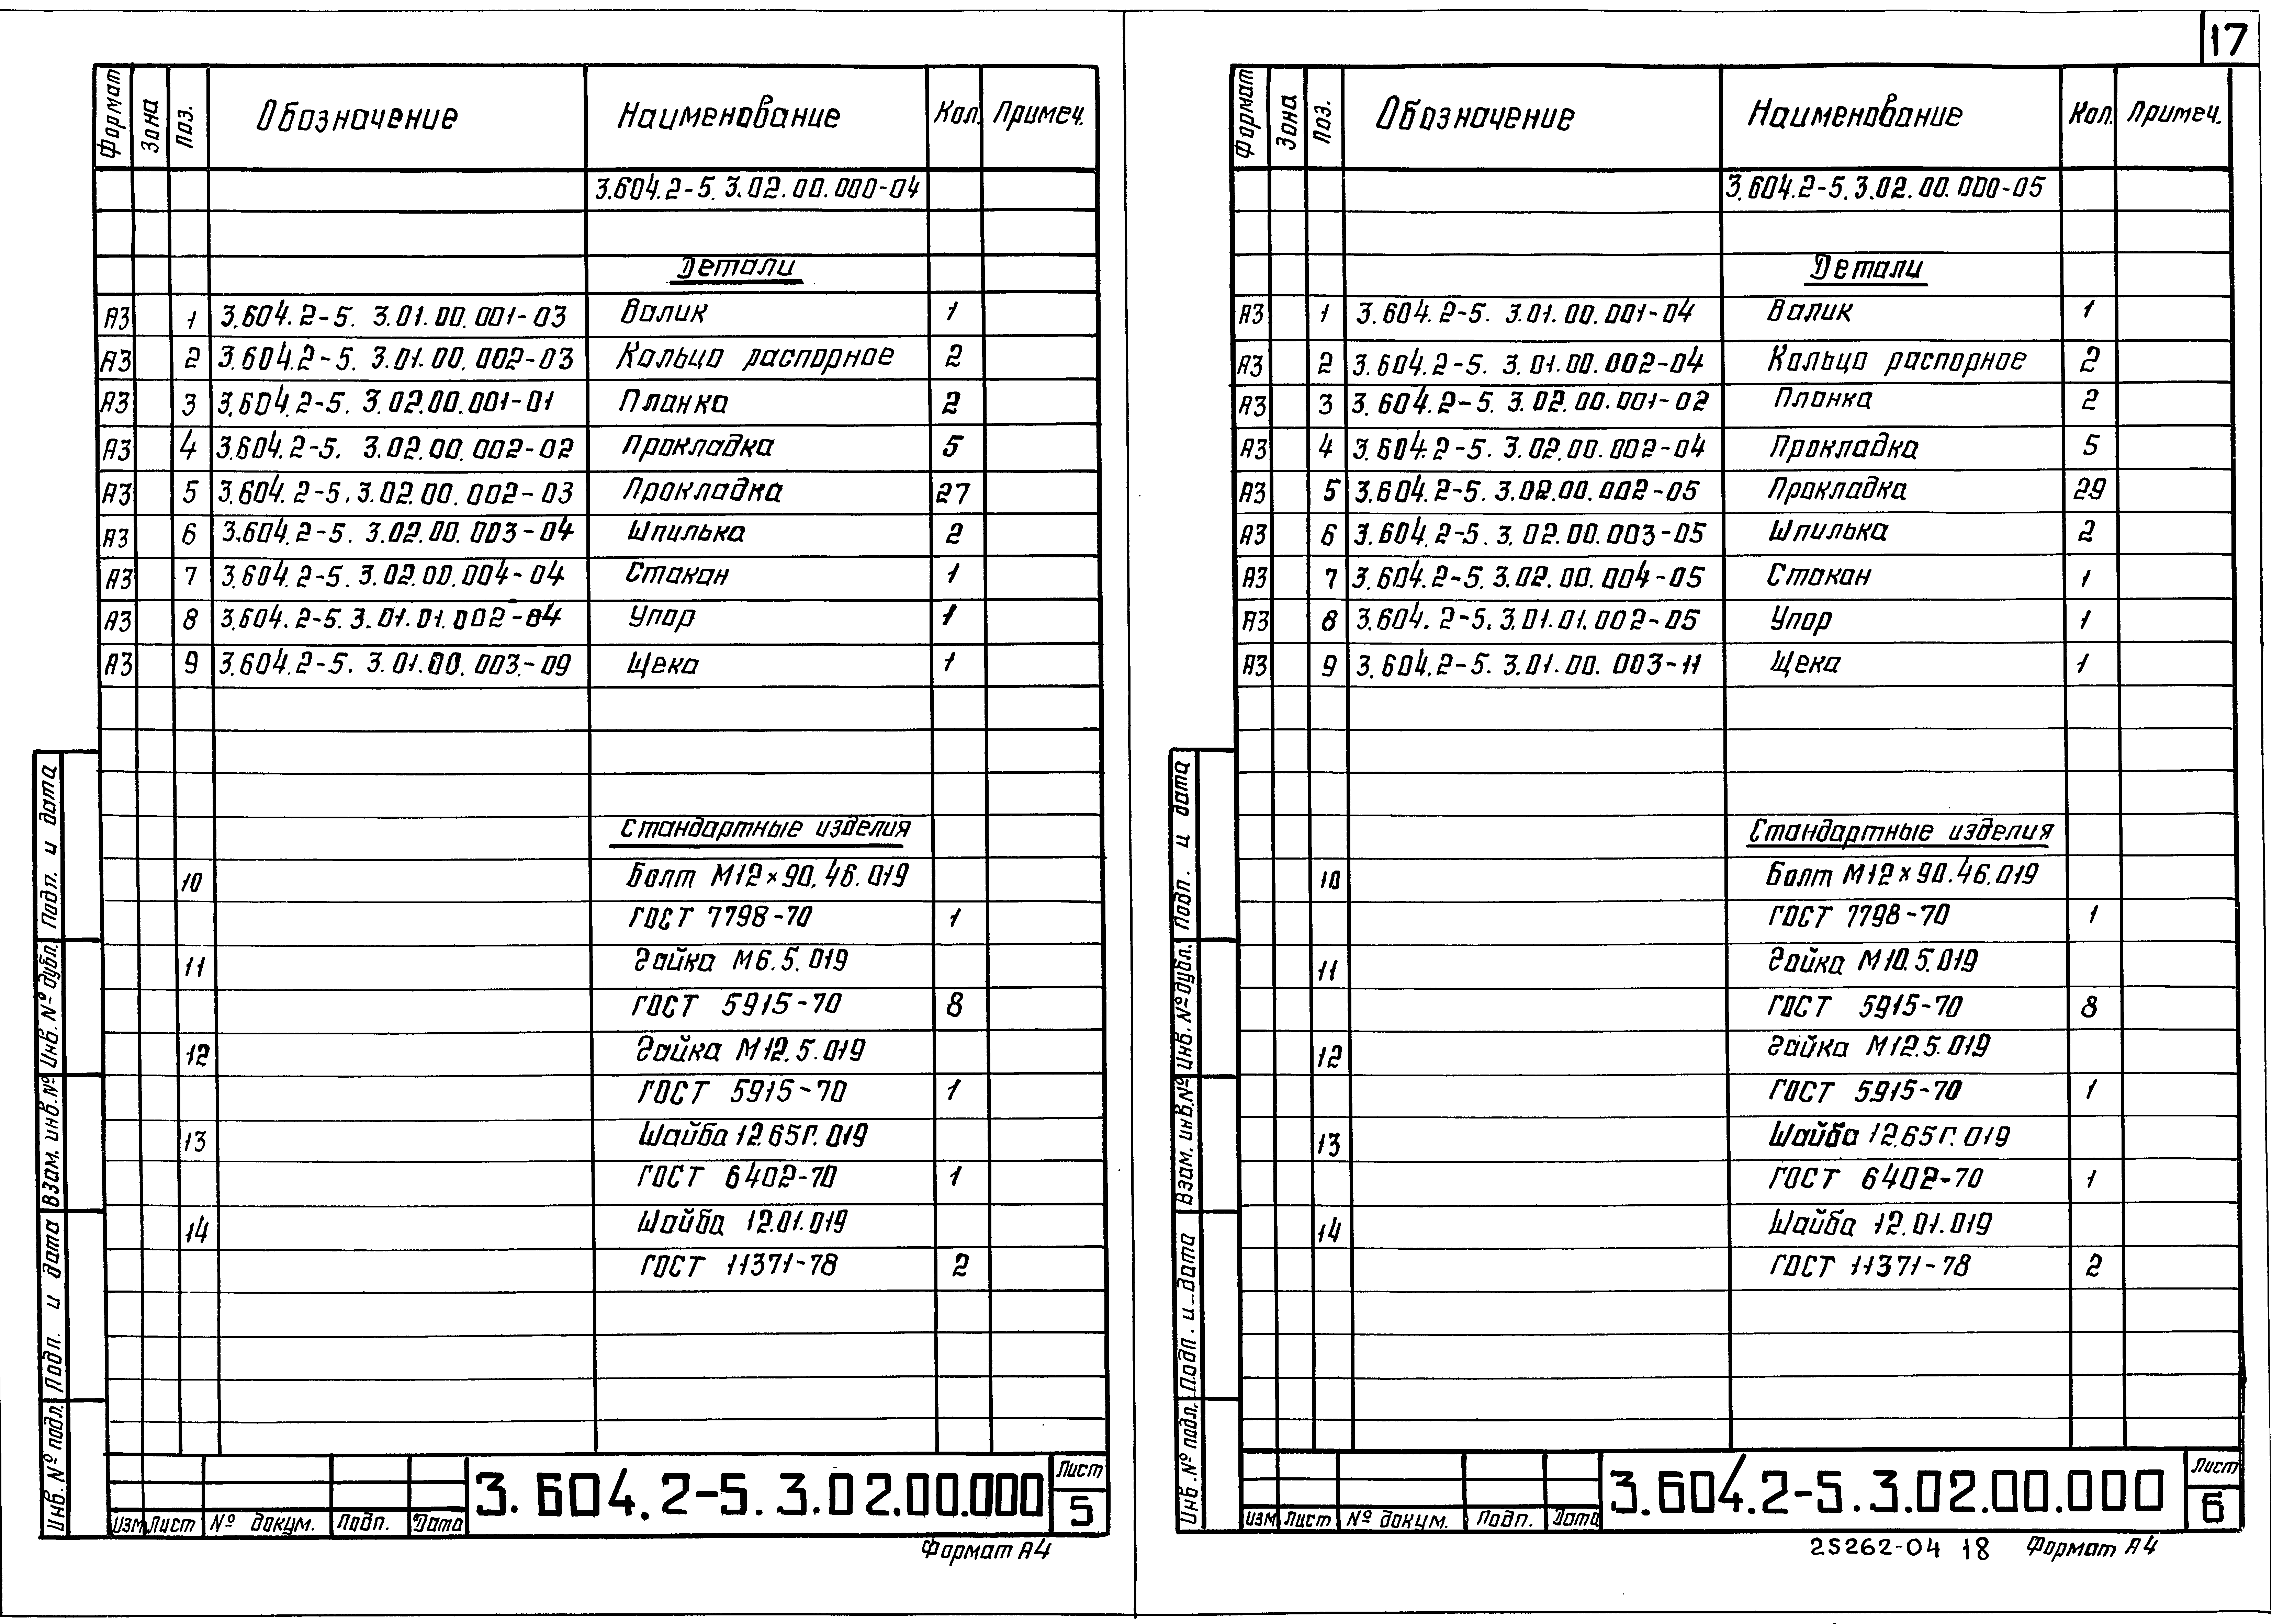 17
Формат Зона Поз. Обозначение Наименование Кол. Примеч.
3.604.2-5.3.02.00.000-04
Детали
А3 1 3.604.2-5. 3.01.00.001-03 Валик 1
А3 2 3.604.2-5. 3.01.00.002-03 Кольцо распорное 2
А3 3 3.604.2-5. 3.02.00.001-01 Планка 2
А3 4 3.604.2-5. 3.02.00.002-02 Прокладка 5
А3 5 3.604.2-5.3.02.00.002-03 Прокладка 27
А3 6 3.604.2-5. 3.02.00.003-04 Шпилька 2
А3 7 3.604.2-5.3.02.00.004-04 Стакан 1
А3 8 3.604.2-5.3.01.01.002-04 Упор 1
А3 9 3.604.2-5. 3.01.00.003-09 Щека 1
Стандартные изделия
10 Болт М12×90.46.019
ГОСТ 7798-70 1
11 Гайка М6.5.019
ГОСТ 5915-70 8
12 Гайка М12.5.019
ГОСТ 5915-70 1
13 Шайба 12.65Г.019
ГОСТ 6402-70 1
14 Шайба 12.01.019
ГОСТ 11371-78 2
Подп. и дата
Инв. № дубл.
Взам. инв. №
Подп. и дата
Инв. № подл.
Изм Лист № докум. Подп. Дата
3.604.2-5.3.02.00.000
Лист
5
Формат А4
Формат Зона Поз. Обозначение Наименование Кол. Примеч.
3.604.2-5.3.02.00.000-05
Детали
А3 1 3.604.2-5. 3.01.00.001-04 Валик 1
А3 2 3.604.2-5. 3.01.00.002-04 Кольцо распорное 2
А3 3 3.604.2-5. 3.02.00.001-02 Планка 2
А3 4 3.604.2-5. 3.02.00.002-04 Прокладка 5
А3 5 3.604.2-5. 3.02.00.002-05 Прокладка 29
А3 6 3.604.2-5. 3.02.00.003-05 Шпилька 2
А3 7 3.604.2-5.3.02.00.004-05 Стакан 1
А3 8 3.604.2-5.3.01.01.002-05 Упор 1
А3 9 3.604.2-5. 3.01.00.003-11 Щека 1
Стандартные изделия
10 Болт М12×90.46.019
ГОСТ 7798-70 1
11 Гайка М10.5.019
ГОСТ 5915-70 8
12 Гайка М12.5.019
ГОСТ 5915-70 1
13 Шайба 12.65Г.019
ГОСТ 6402-70 1
14 Шайба 12.01.019
ГОСТ 11371-78 2
Подп. и дата
Инв. № дубл.
Взам. инв. №
Подп. и дата
Инв. № подл.
Изм Лист № докум. Подп. Дата
3.604.2-5.3.02.00.000
Лист
6
25262-04 18 Формат А4